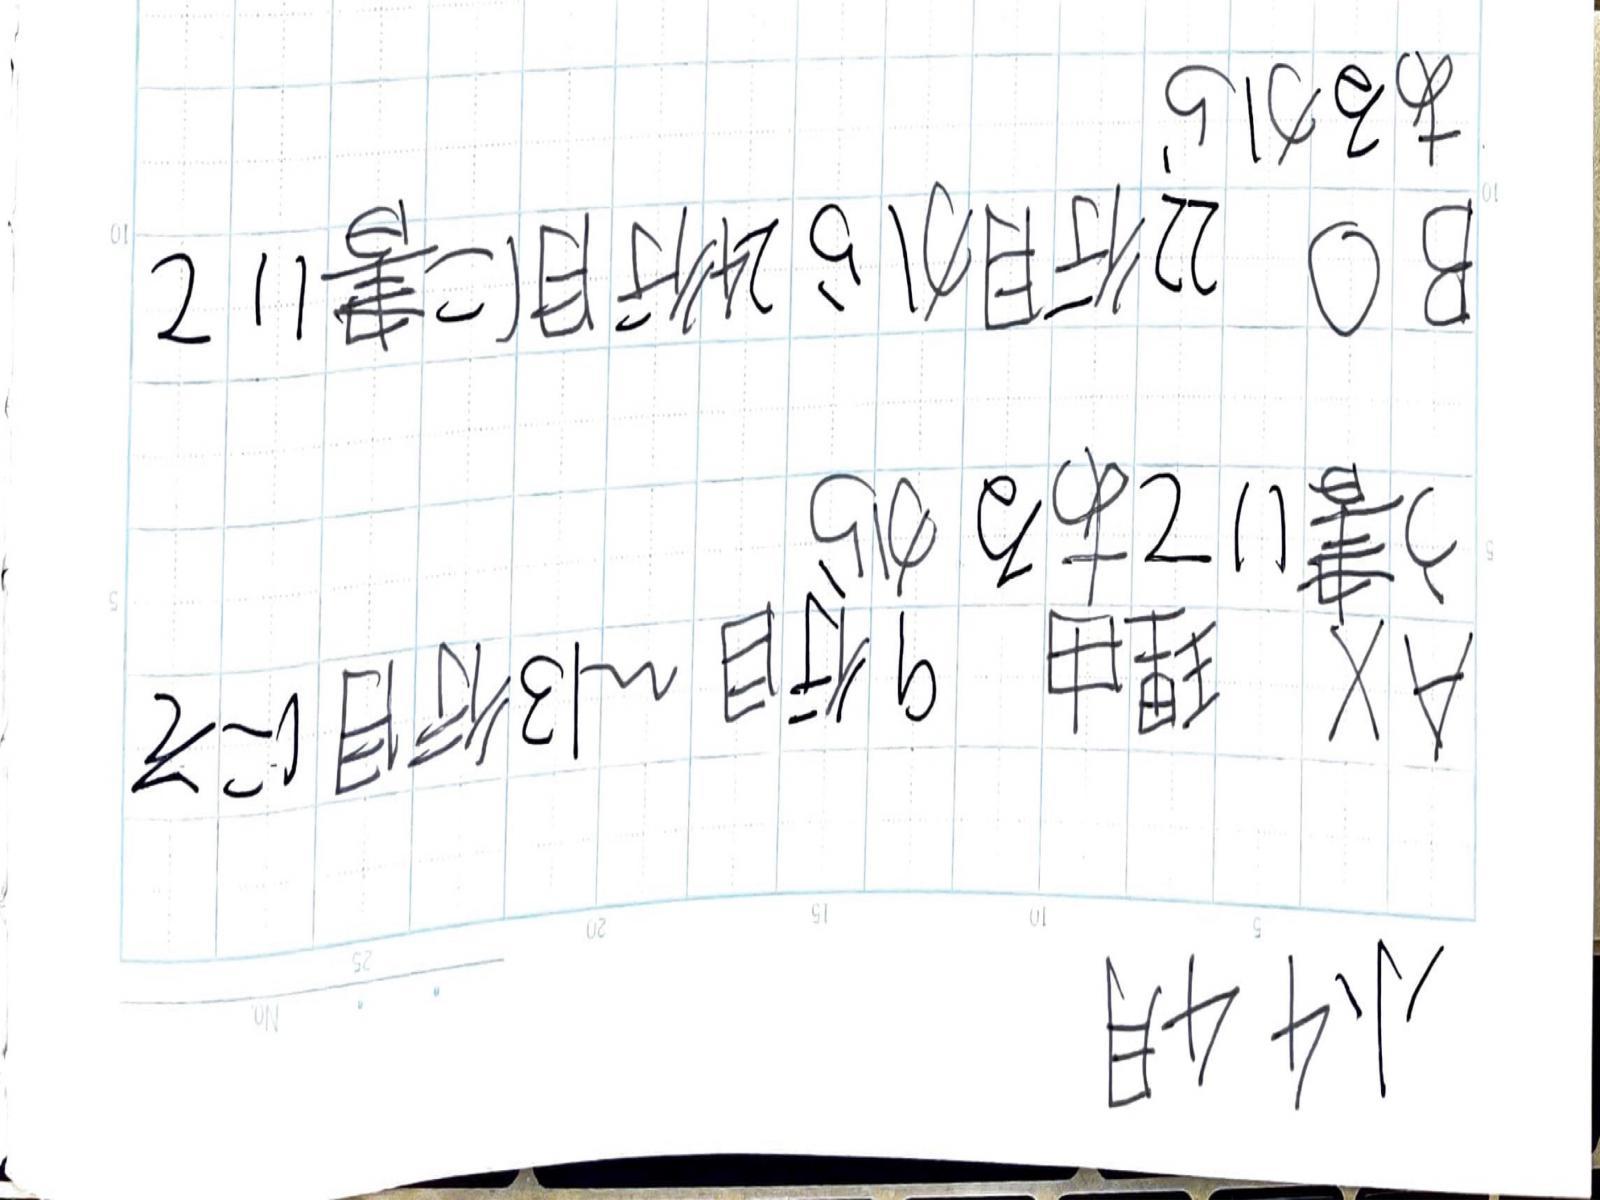 小4 4月
No.
5 10 15 20 25
A X 理由 9行目~13行目にそ
う書いてあるから
5 5
B O 22行目から24行目に書いて
10 10
あるから